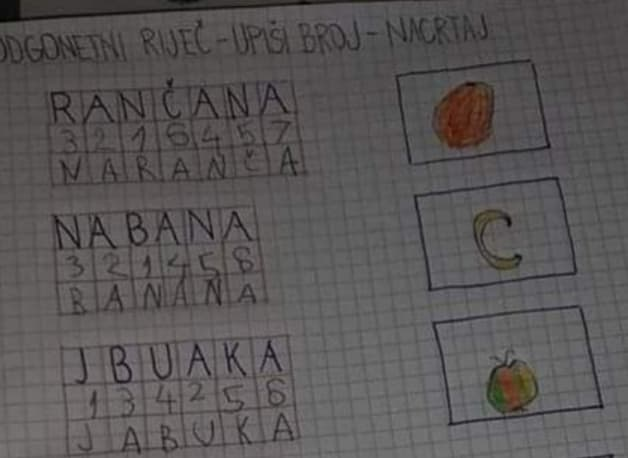 ODGONETNI RIJEČ - UPIŠI BROJ - NACRTAJ
RANČANA
3 2 1 6 4 5 7
NARANČA
NABANA
3 2 1 4 5 6
BANANA
JBUAKA
1 3 4 2 5 6
JABUKA